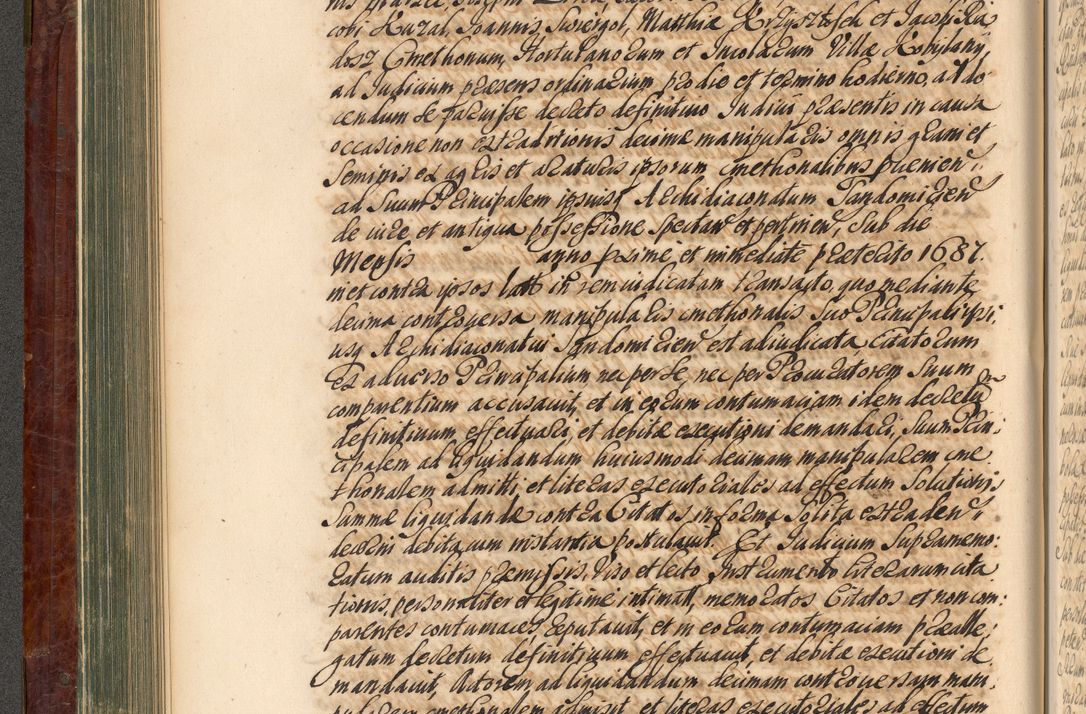 cobi Kuzal, Joannis Swiergol, Matthiæ Krzysztofek et Jacobi Ra
dosz Cmethonum, Hortulanorum et Incolarum Villæ Kobylany,
ad Judicium præsens ordinarium pro die et termino hodierno, ad do
cendum se paruisse decreto definitivo Judicii præsentis in causa
occasione non extraditionis decimæ manipularis omnis grani et
Seminis ex agris et araturis ipsorum cmethonalibus provenien,
ad Suum Principalem ipsiusq Archidiaconatum Sandomirien
de iure et antiqua possessione spectan et pertinen, sub die
Mensis anno proxime, et immediate præterito 1687.
inter contra ipsos lato in rem iudicatam transacto, quo mediante
decima controversa manipularis cmethonalis suo Principali ipsi
usq Archidiaconatui Sandomirien est adiudicata Citatorum
ex adverso Principalium nec per se, nec per Procuratorem suum
comparentium accusavit, et in eorum contumaciam idem decretum
definitivum effectuari, et debitæ executioni demandari, suum Prin:
cipalem ad liquidandum huiusmodi decimam manipularem cme
thonalem admitti, et literas executoriales ad effectum solutionis
Summæ liquidandæ contra Citatos in forma solita extraden,
decerni debita cum instantia postulavit. Et Judicium supramemo:
ratum auditis præmissis, viso et lecto Instrumento literarum cita
tionis, personaliter et legitime intimatt, memoratos Citatos et non com:
parentes contumaces reputavit, et in eorum contumaciam præalle,
gatum decretum definitivum effectuavit, et debitæ executioni de
mandavit, Actorem ad liquidandum decimam controversam mani,
pularem cmethonalem admisit, et literas executoriales ad effectum